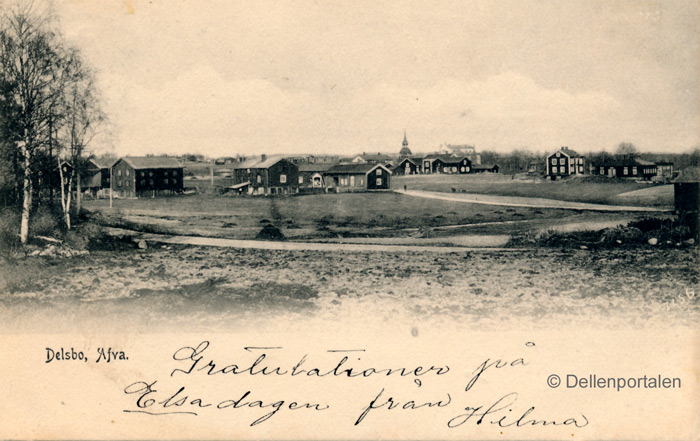 Delsbo, Åfva.
Gratulationer på
Elsadagen från Hilma
© Dellenportalen